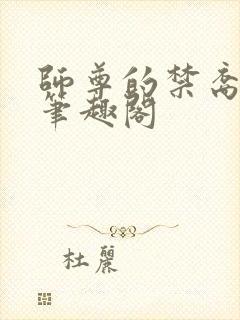 師尊的禁脔
筆趣閣
杜麗